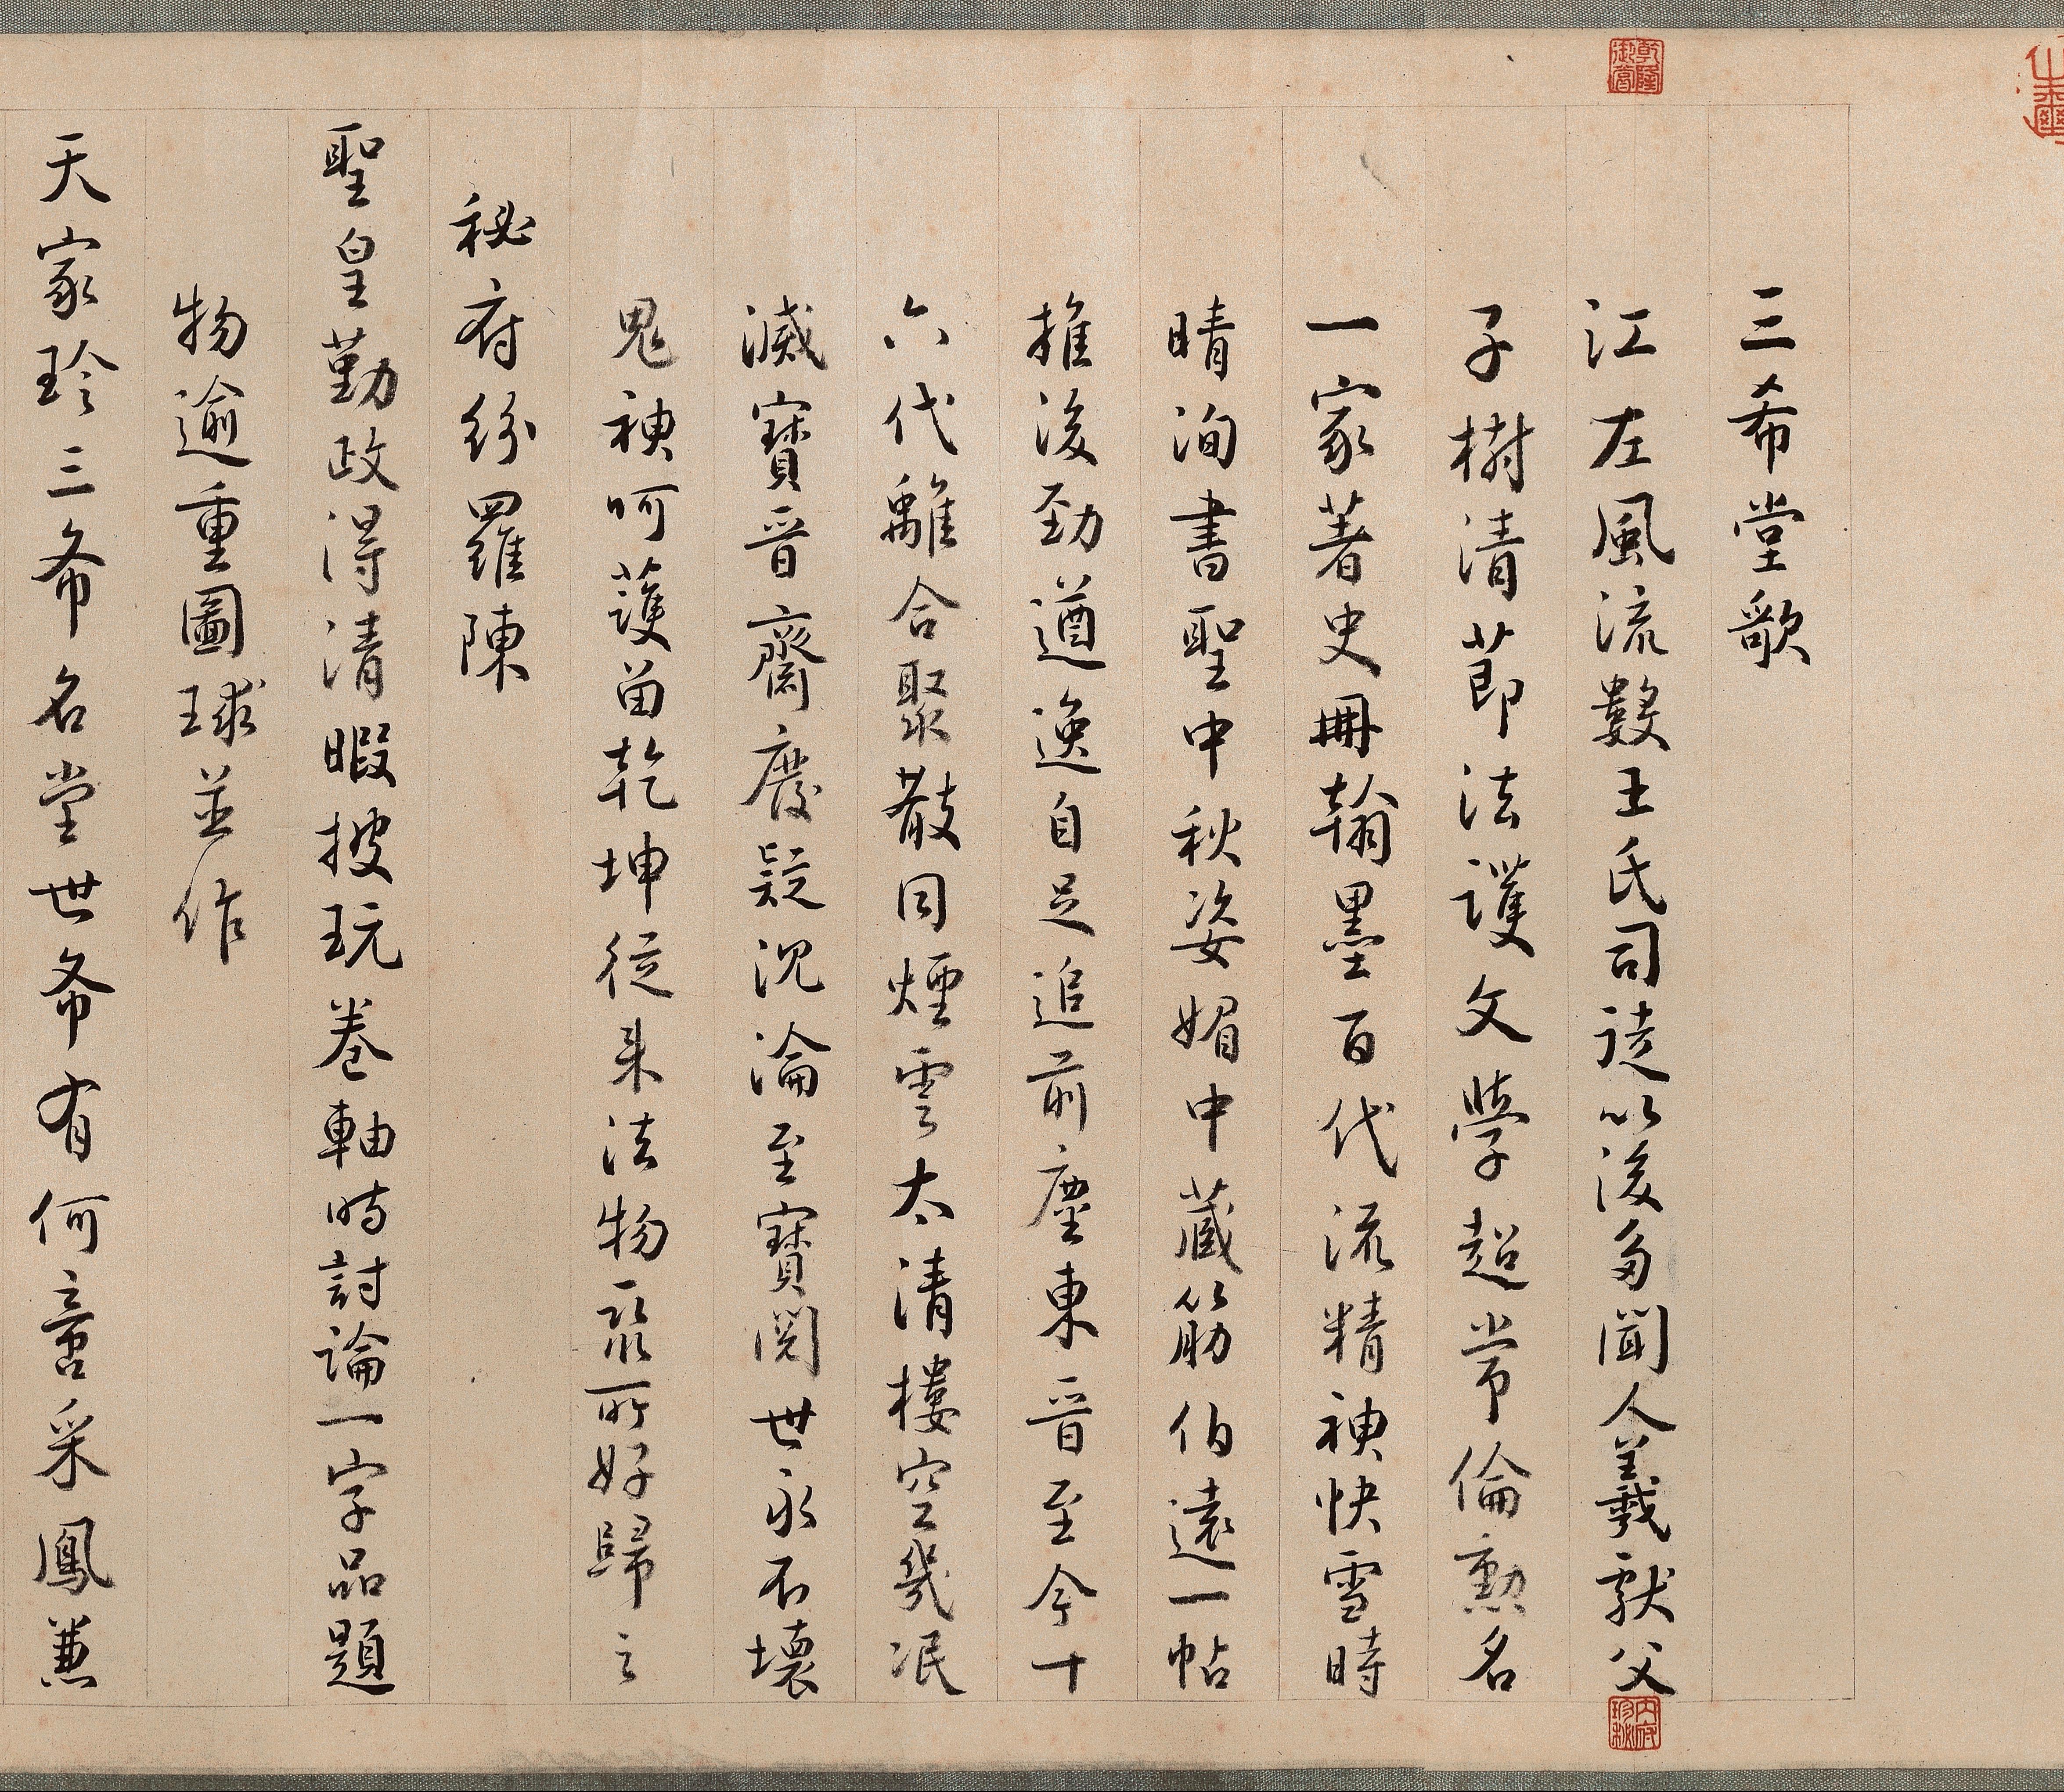 三希堂歌
江左風流數王氏司徒以後多聞人羲獻父
子樹清節法護文學超常倫勲名
一家著史冊翰墨百代流精神快雪時
晴洵書聖中秋姿媚中藏筋伯遠一帖
推後勁遒逸自足追前塵東晉至今十
六代離合聚散同煙雲太清樓空幾泯
滅寶晉齋廢疑沉淪至寶閱世永不壞
鬼神呵護留乾坤從來法物聚所好歸之
秘府紛羅陳
聖皇勤政得清暇披玩卷軸時討論一字品題
物逾重圖球並作
天家珍三希名堂世希有何啻采鳳兼
乾隆御覽
內府珍秘